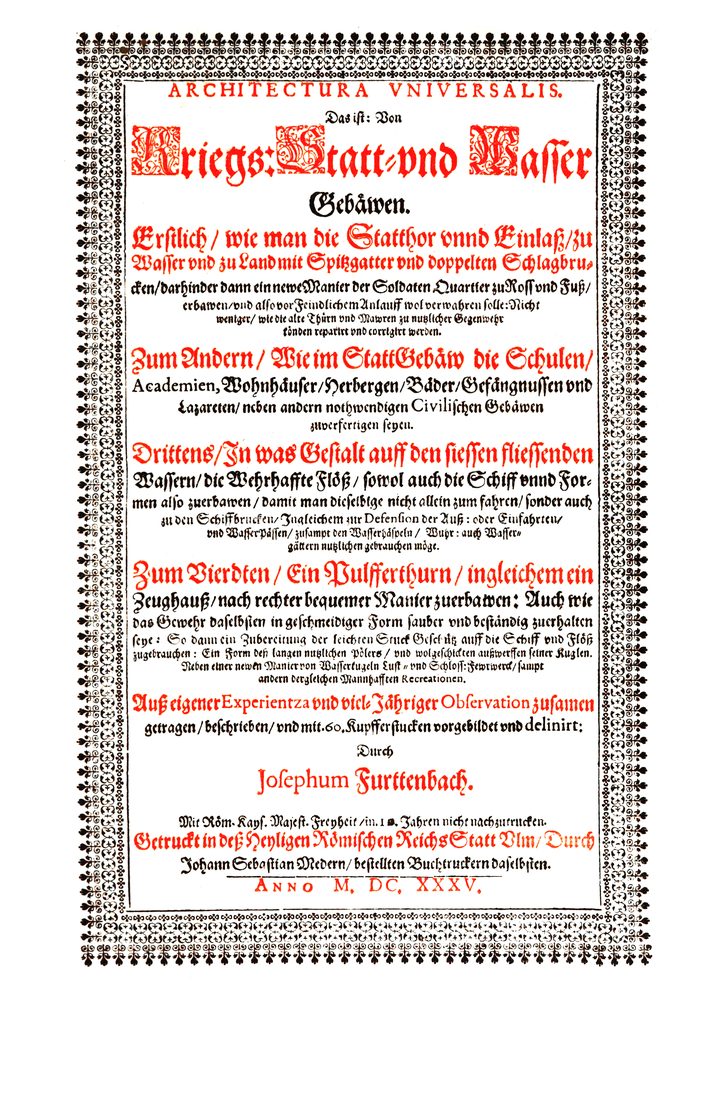 ARCHITECTURA VNIVERSALIS.
Das ist: Von
Kriegs: Statt- vnd Wasser
Gebäwen.
Erstlich / wie man die Statthor vnnd Einlaß / zu
Wasser vnd zu Land mit Spitzgatter vnd doppelten Schlagbru-
cken / darhinder dann ein newe Manier der Soldaten Quartier zu Ross vnd Fuß /
erbawen / vnd also vor Feindlichem Anlauff wol verwahren solle: Nicht
weniger / wie die alte Thürn vnd Mawren zu nutzlicher Gegenwehr
könden repariert vnd corrigirt werden.
Zum Andern / Wie im Statt Gebäw die Schulen /
Academien, Wohnhäuser / Herbergen / Bäder / Gefängnussen vnd
Lazareten / neben andern nothwendigen Civilischen Gebäwen
zuverfertigen seyen.
Drittens / In was Gestalt auff den fiessen fliessenden
Wassern / die Wehrhaffte Flöß / sowol auch die Schiff vnnd For-
men also zuerbawen / damit man dieselbige nicht allein zum fahren / sonder auch
zu den Schiffbrucken / Ingleichem zur Defension der Auß: oder Einfahrten /
vnd Wasser Pässen / zusampt den Wasserhäspeln / Wuhr: auch Wasser-
gättern nutzlichen gebrauchen möge.
Zum Vierdten / Ein Pulfferthurn / ingleichem ein
Zeughauß / nach rechter bequemer Manier zuerbawen: Auch wie
das Gewehr daselbsten in geschmeidiger Form sauber vnd beständig zuerhalten
seye: So dann ein Zubereitung der leichten Stuck Geschütz auff die Schiff vnd Flöß
zugebrauchen: Ein Form deß langen nutzlichen Pölers / vnd wolgeschickten außwerffen seiner Kuglen.
Neben einer newen Manier von Wasserkugeln Lust- vnd Schloss: Fewrwerck / sampt
andern dergleichen Mannhafften Recreationen.
Auß eigener Experientza vnd viel-Jähriger Observation zusamen
getragen / beschrieben / vnd mit 60. Kupfferstucken vorgebildet vnd delinirt:
Durch
Josephum Furttenbach.
Mit Röm. Kays. Majest. Freyheit / in Jahren nicht nachzutrucken.
Getruckt in deß Heyligen Römischen Reichs Statt Vlm / Durch
Johann Sebastian Medern / bestellten Buchtruckern daselbsten.
ANNO M. DC. XXXV.